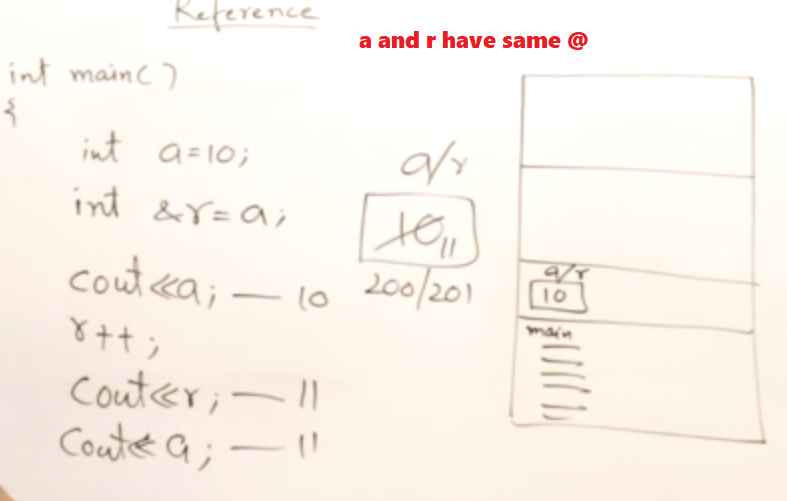 Reference
a and r have same @
int main()
{
int a=10;
int &r=a;
cout<<a; — 10
r++;
cout<<r; — 11
cout<<a; — 11
a/r
10 11
200/201
a/r
10
main